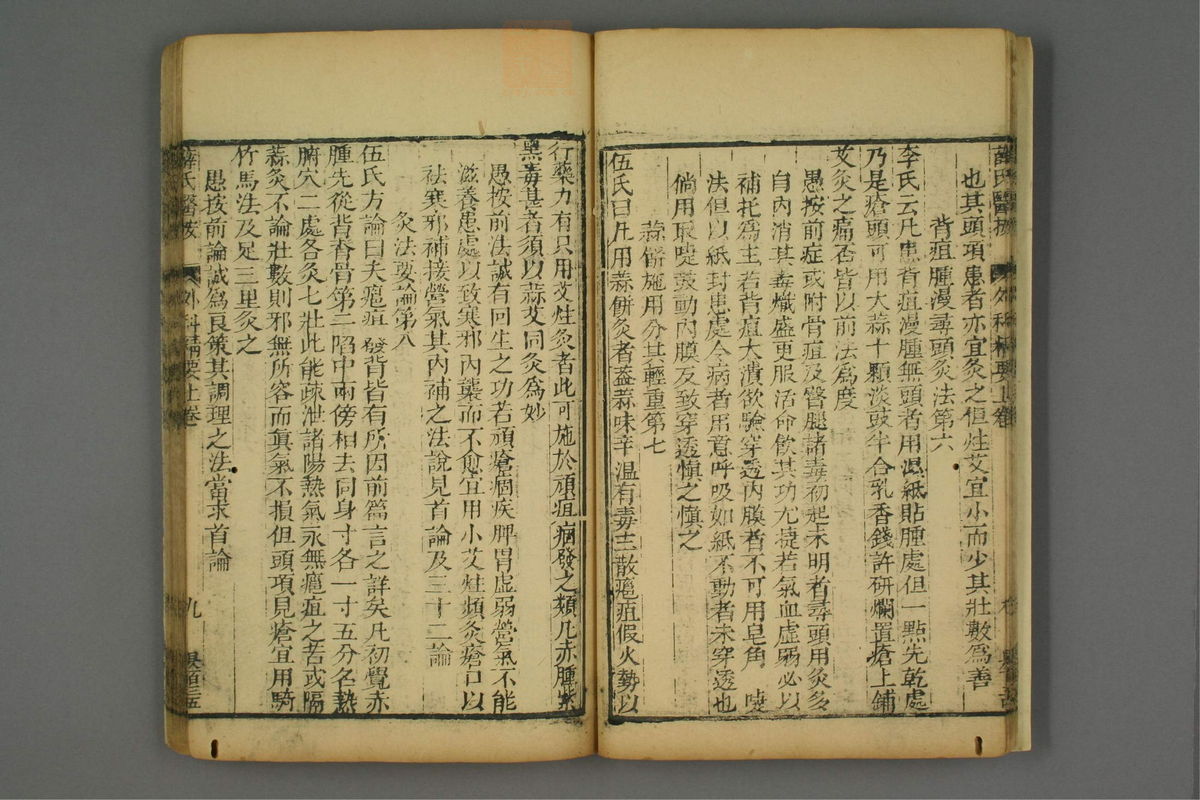 薛氏醫按 外科精要上卷
也其頭項患者亦宜灸之但炷艾宜小而少其壯數爲善
背疽腫漫尋頭灸法第六
李氏云凡患背疽漫腫無頭者用濕紙貼腫處但一點先乾處
乃是瘡頭可用大蒜十顆淡豉半合乳香錢許研爛置瘡上鋪
艾灸之痛否皆以前法爲度
愚按前症或附骨疽及臀腿諸毒初起未明者尋頭用灸多
自內消其毒熾盛更服活命飲其功尤捷若氣血虛弱必以
補托爲主若背疽大潰欲驗穿透內膜者不可用皂角 嚏
法但以紙封患處令病者用意呼吸如紙不動者未穿透也
倘用取嚏鼓動內膜反致穿透慎之慎之
蒜餅施用分其輕重第七
伍氏曰凡用蒜餅灸者蓋蒜味辛溫有毒主散癰疽假火勢以
行藥力有只用艾炷灸者此可施於頑疽痼發之類凡赤腫紫
黑毒甚者須以蒜艾同灸爲妙
愚按前法誠有回生之功若頑瘡痼疾脾胃虛弱營氣不能
滋養患處以致寒邪內襲而不愈宜用小艾炷頻灸瘡口以
袪寒邪補接營氣其內補之法說見首論及三十二論
灸法要論第八
伍氏方論曰夫癰疽發背皆有所因前篇言之詳矣凡初覺赤
腫先從背脊骨第二陷中兩傍相去同身寸各一寸五分名熱
腑穴二處各灸七壯此能疎泄諸陽熱氣永無癰疽之苦或隔
蒜灸不論壯數則邪無所容而眞氣不損但頭項見瘡宜用騎
竹馬法及足三里灸之
愚按前論誠爲良策其調理之法當求首論
薛氏醫按 外科精要上卷 九